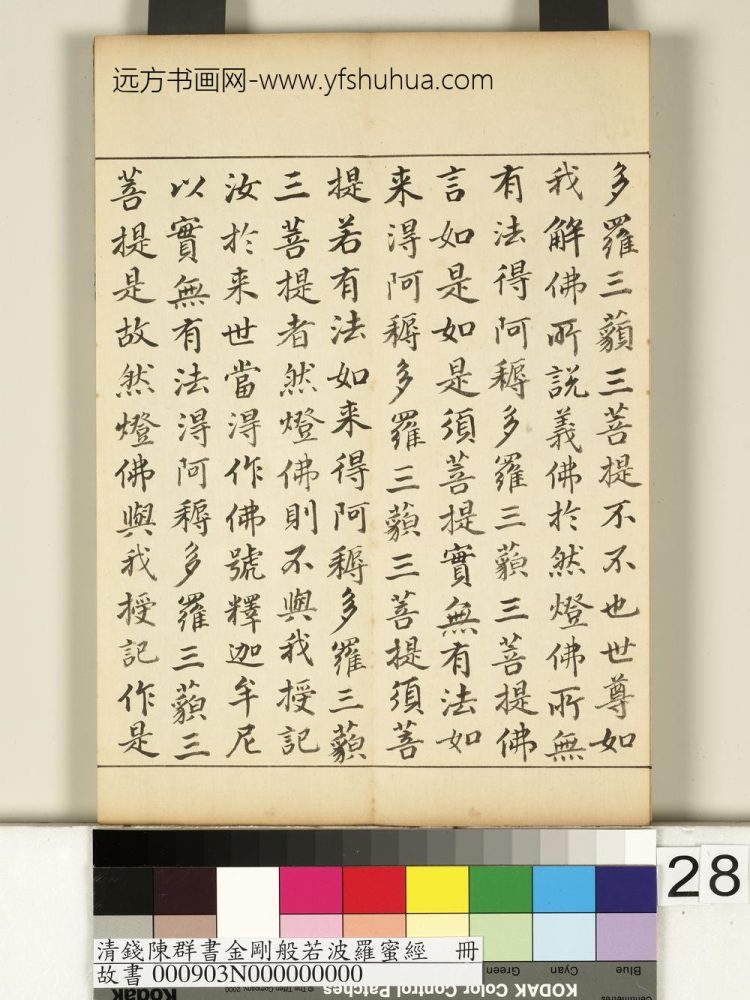 远方书画网-www.yfshuhua.com
多羅三藐三菩提不不也世尊如
我解佛所說義佛於然燈佛所無
有法得阿耨多羅三藐三菩提佛
言如是如是須菩提實無有法如
来得阿耨多羅三藐三菩提須菩
提若有法如来得阿耨多羅三藐
三菩提者然燈佛則不與我授記
汝於来世當得作佛號釋迦牟尼
以實無有法得阿耨多羅三藐三
菩提是故然燈佛與我授記作是
28
清錢陳群書金剛般若波羅蜜經 冊
故書 000903N000000000
© The Tiffen Company, 2000
KODAK Color Control Patches
Blue
Cyan
Green
Centimetres